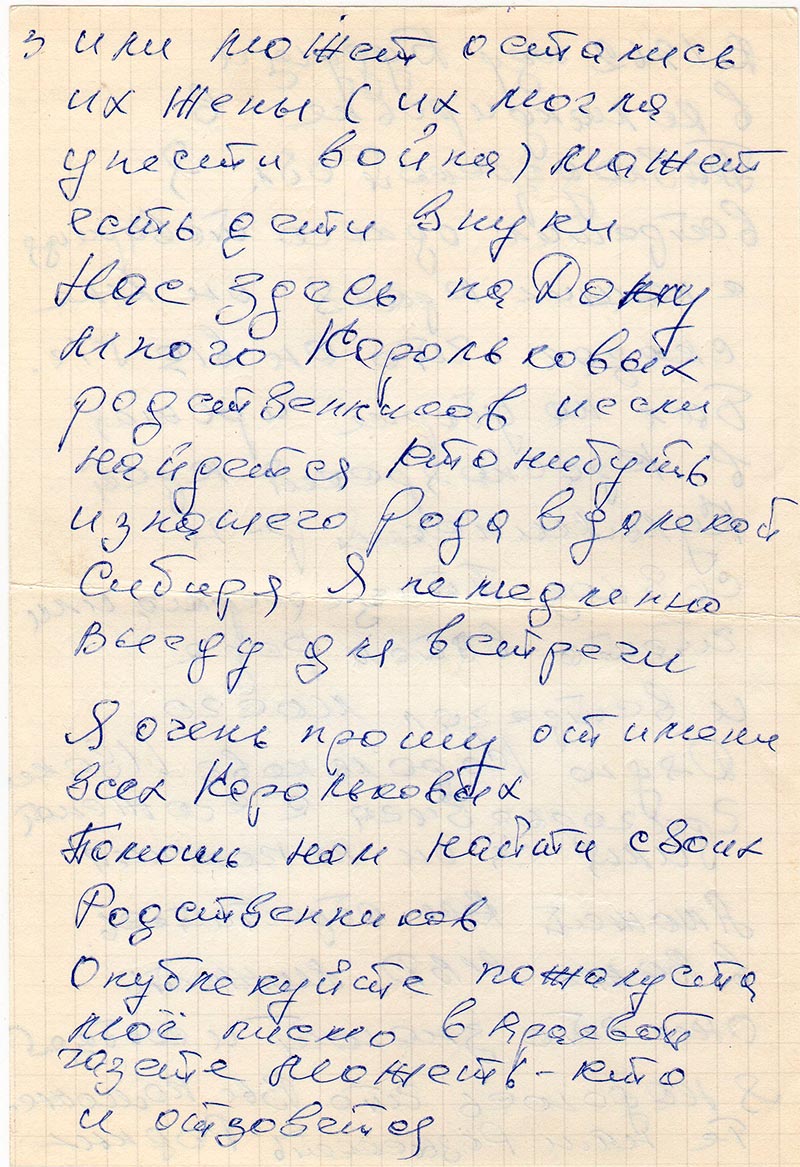 3 или может остались
их жены ( их могла
унести война) может
есть дети внуки
Нас здесь на Дону
много Корольковых
родственников иесли
найдется кто нибуть
из нашего Рода в далекой
Сибиря Я немедленно
выеду для встречи
Я очень прошу от имени
всех Корольковых
Помошь нам найти своих
Родственников
Опубликуйте пожалуста
моё писмо в краевой
газете можеть-кто
и отзовется